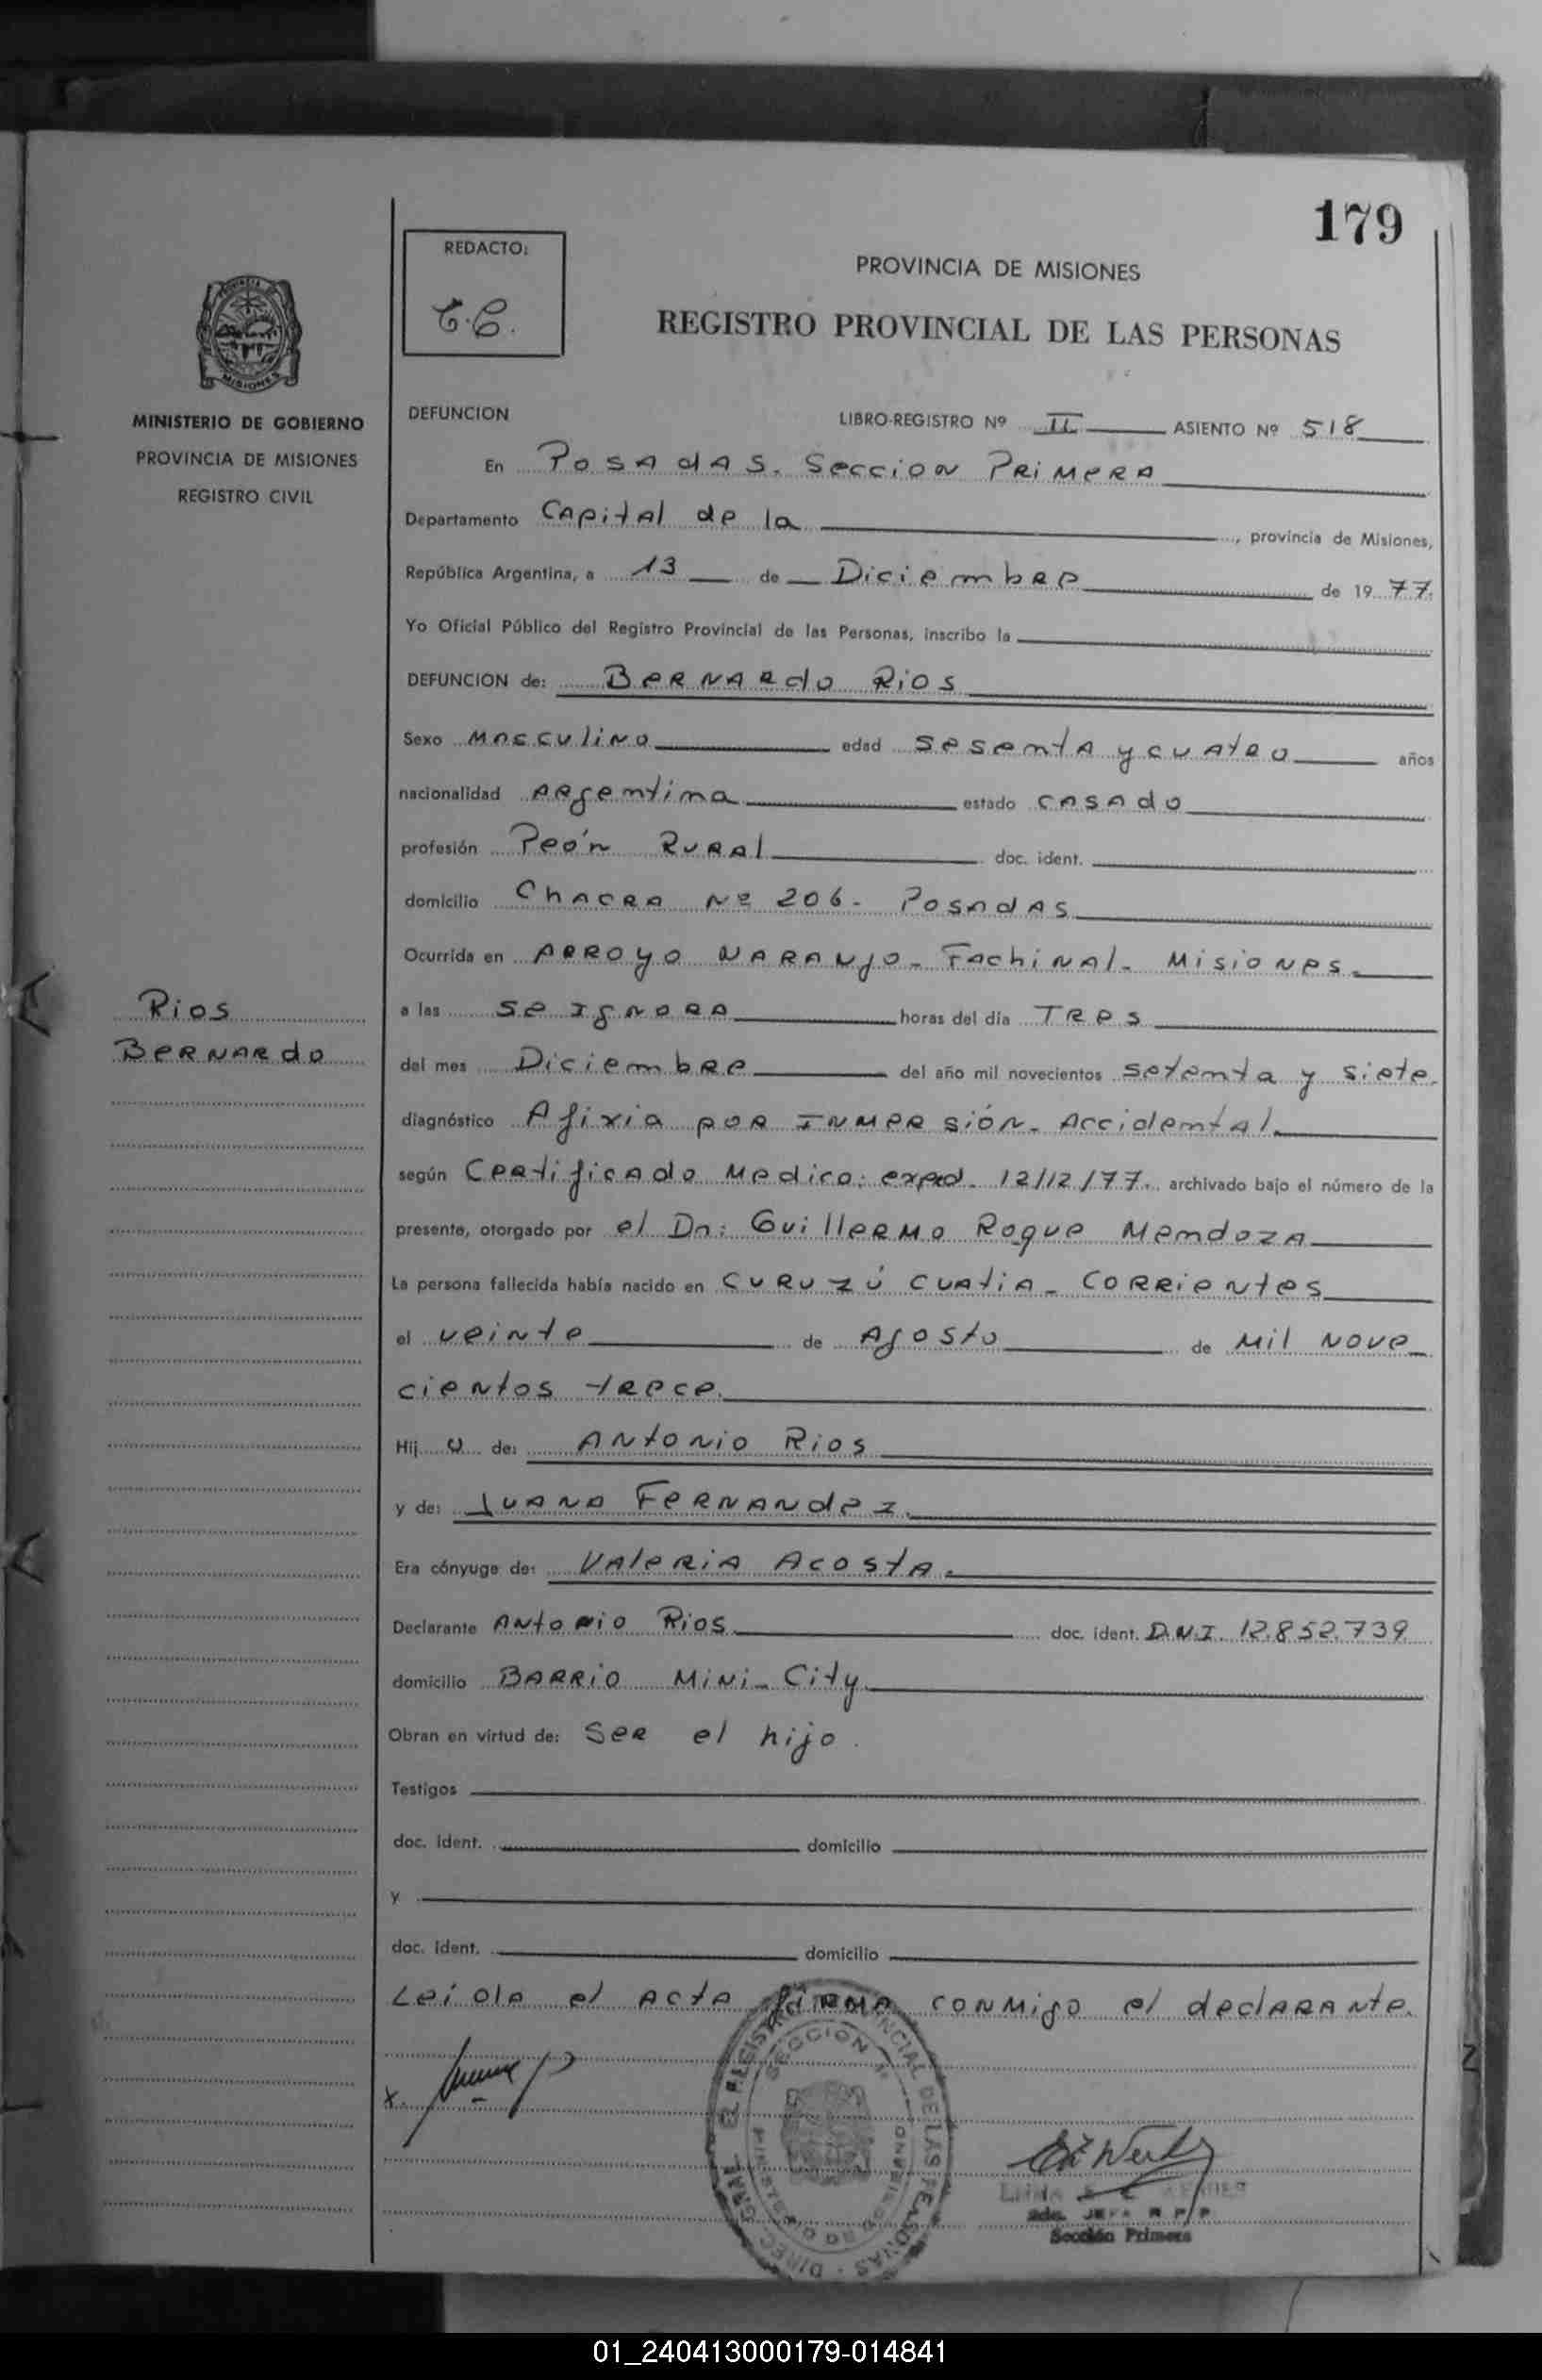 179
REDACTO:
PROVINCIA DE MISIONES
REGISTRO PROVINCIAL DE LAS PERSONAS
MINISTERIO DE GOBIERNO
PROVINCIA DE MISIONES
REGISTRO CIVIL
DEFUNCION LIBRO-REGISTRO Nº II ASIENTO Nº 518
En Posadas. Seccion Primera
Departamento Capital de la, provincia de Misiones,
República Argentina, a 13 de Diciembre de 1977.
Yo Oficial Público del Registro Provincial de las Personas, inscribo la
DEFUNCION de: Bernardo Rios
Sexo Masculino edad sesenta y cuatro años
nacionalidad Argentina estado casado
profesión Peón Rural doc. ident.
domicilio Chacra Nº 206 - Posadas
Ocurrida en Arroyo Naranjo - Fachinal - Misiones.
Rios
Bernardo
a las se ignora horas del día Tres
del mes Diciembre del año mil novecientos setenta y siete.
diagnóstico Afixia por Inmersión - Accidental.
según Certificado Medico: exped. 12/12/77. archivado bajo el número de la
presente, otorgado por el Dn: Guillermo Roque Mendoza
La persona fallecida había nacido en Curuzú Cuatia - Corrientes
el veinte de Agosto de Mil nove_
cientos trece.
Hij o de: Antonio Rios
y de: Juana Fernandez.
Era cónyuge de: Valeria Acosta.
Declarante Antonio Rios doc. ident. D.N.I. 12.852.739
domicilio Barrio Mini-City.
Obran en virtud de: Ser el hijo.
Testigos
doc. ident. domicilio
y
doc. ident. domicilio
Leida el acta firma conmigo el declarante.
x.
SECCION 1ª
Sección Primera
01_240413000179-014841